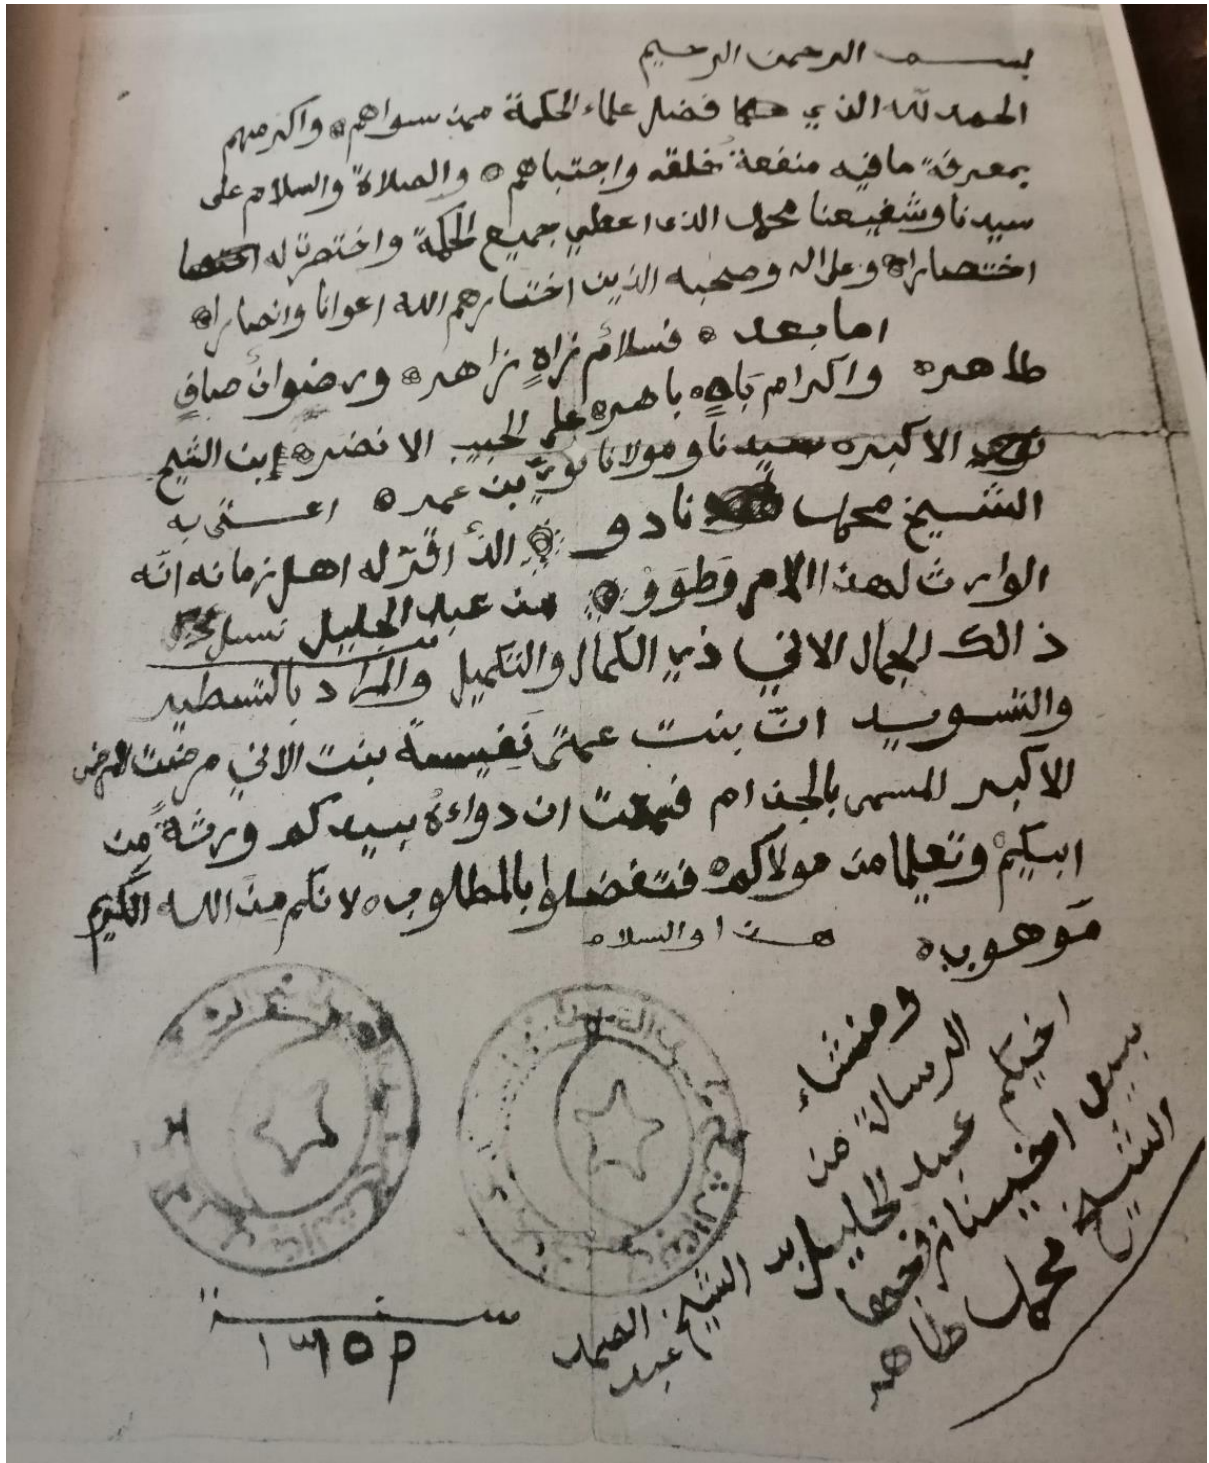 بسم الرحمن الرحيم
الحمد لله الذي فضل علماء الحكمة ممن سواهم واكرمهم
بمعرفة مافيه منفعة خلقه واجتباهم والصلاة والسلام على
سيدنا وشفيعنا محمد الذى اعطي جميع الحكمة واختصرت له
اختصارا وعلى اله وصحبه الذين اختارهم الله اعوانا وانصارا
اما بعد فسلام زاه زاهره ورضوان صاف
طاهره واكرام باه باهره على الحبيب الانضره ابن الشيخ
الاكبره سيدنا ومولانا بن عمره اعتنى به
الشيخ محمد نادو الذ اقر له اهل زمانه انه
الوارث لهذا الامر وطوو من عبد الجليل نسل
ذالك الجمال الاني ذي الكمال والتكميل والمراد بالتسطير
والتسويد ان بنت عمتى نفيسة بنت الاني مرضت المرض
الاكبر المسمى بالجذام فسمعت ان دواءه بيدكم ورثة من
ابيكم وتعلما من مولاكم فتفضلوا بالمطلوب لانكم من الله الكريم
موهوبه هذا والسلام
ومنشاء
الرسالة من
اخيكم عبد الجليل بن الشيخ عبد الصمد
بيد اخينا
الشيخ محمد طاهر
سنة
١٣٦٥م